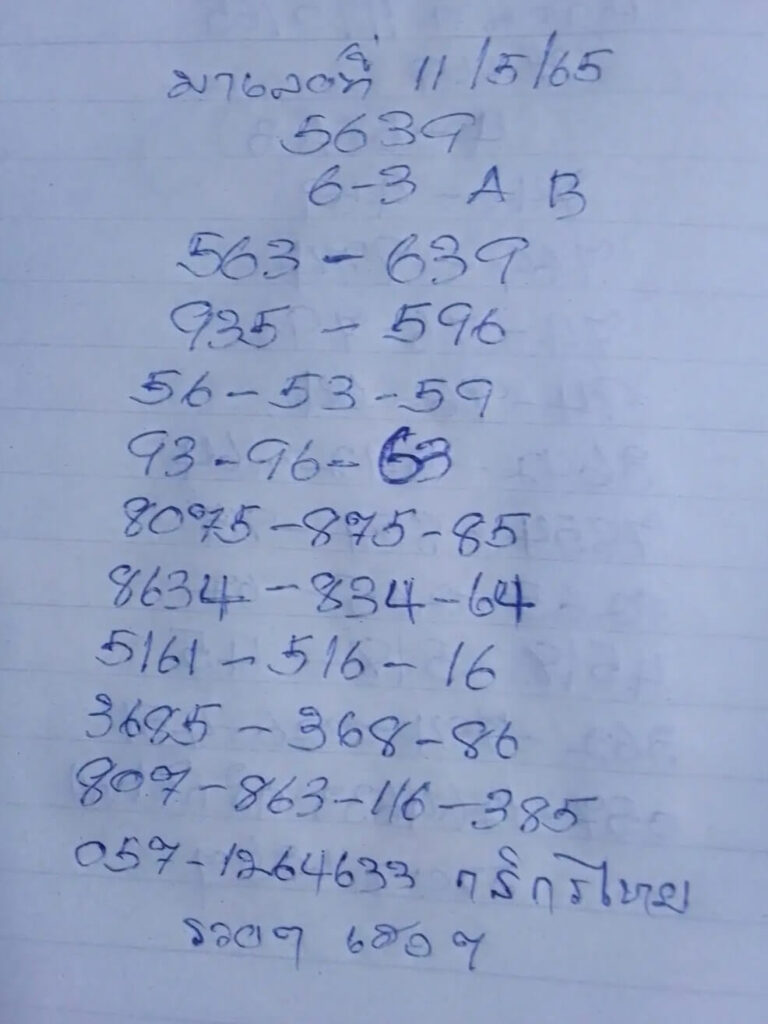 มาเลย์ที่ 11/5/65
5639
6-3 A B
563 - 639
935 - 596
56 - 53 - 59
93 - 96 - 63
8075 - 875 - 85
8634 - 834 - 64
5161 - 516 - 16
3685 - 368 - 86
807 - 863 - 116 - 385
057-1264633 กสิกรไทย